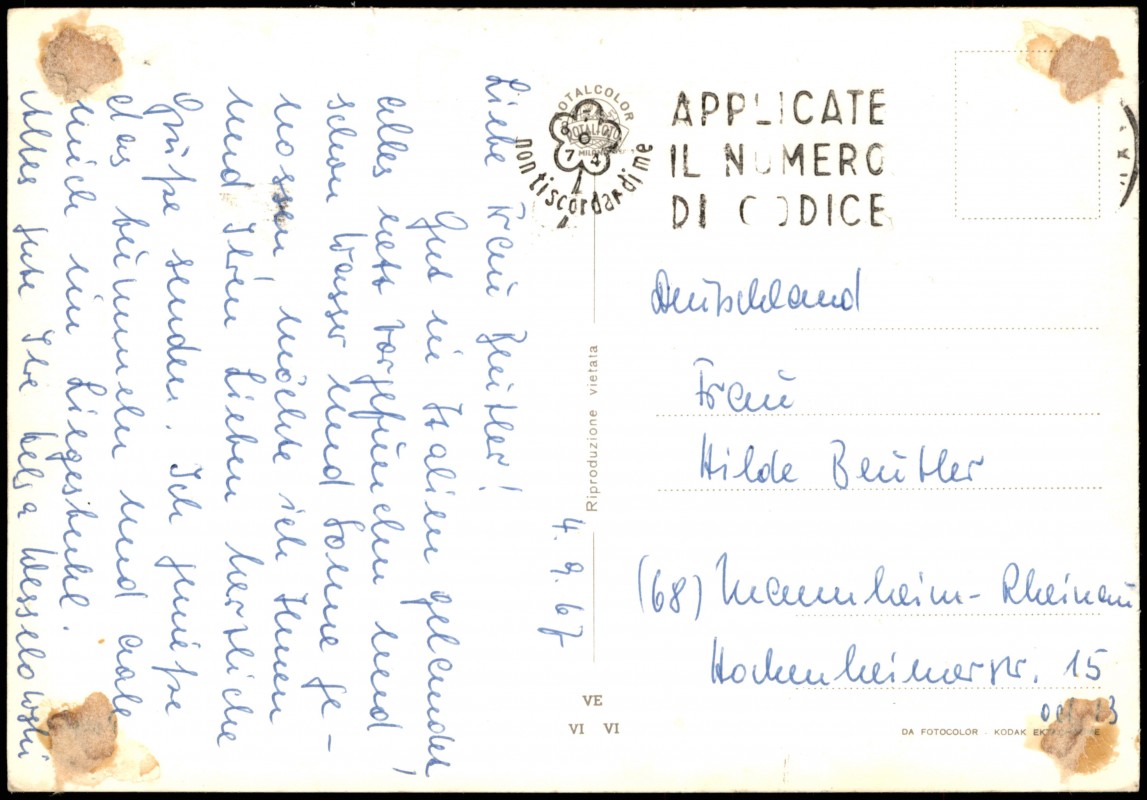 4. 9. 67
Liebe Frau Beutler!
Gut in Italien gelandet,
alles nett vorgefunden und
schon Wasser und Sonne ge-
nossen, möchte ich Ihnen
und Ihren Lieben herzliche
Grüße senden. Ich genieße
das bummeln und aale
mich im Liegestuhl.
Alles gute Ihre Helga Wesselowski
TOTALCOLOR
MILANO
nontiscordardime
APPLICATE
IL NUMERO
DI CODICE
Riproduzione vietata
Deutschland
Frau
Hilde Beutler
(68) Mannheim-Rheinau
Hockenheimerstr. 15
VE
VI VI
DA FOTOCOLOR - KODAK